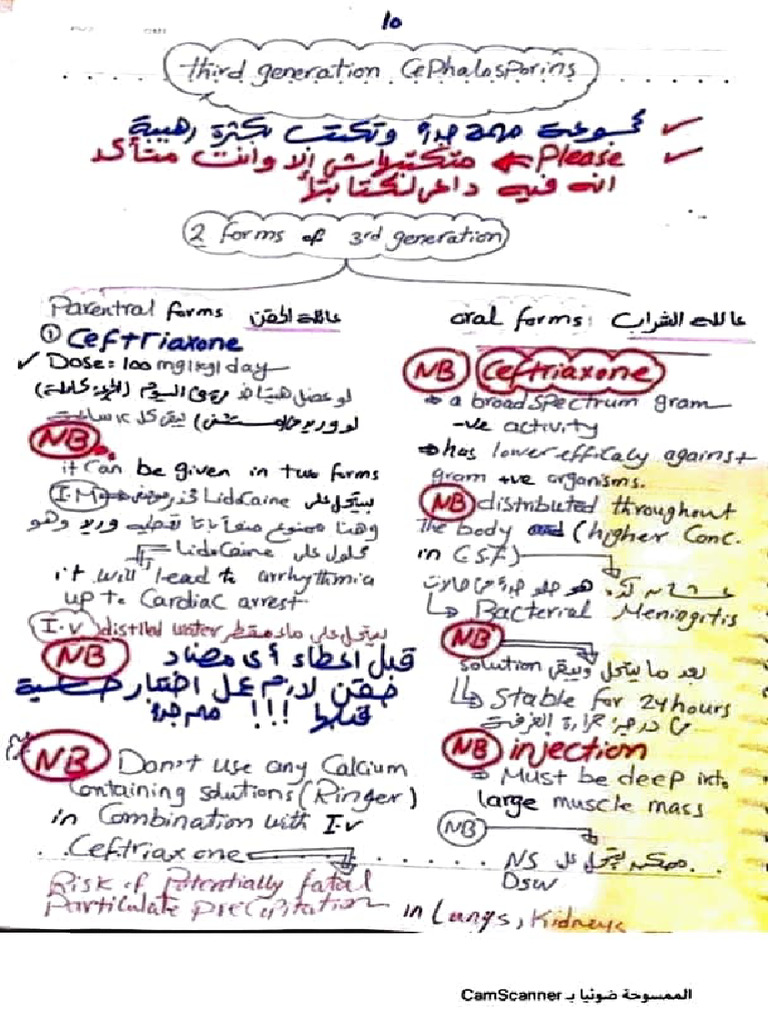 10
third generation Cephalosporins
مجموعة مهمة جدا وتكتب بكثرة رهيبة
Please متكتبهاش إلا وانت متأكد
انه فيه داعى لكتابتها
2 forms of 3rd generation
Parentral forms عائلة الحقن
① Ceftriaxone
Dose = 100 mg/kg/day
NB
it can be given in two forms
I.M بيتحل على Lidocaine
وهنا ممنوع منعا باتا تعطيه وريد وهو
محلول على Lidocaine
it will lead to arrhythmia
up to Cardiac arrest
I.V distilled water بيتحل على ماء مقطر
NB قبل اعطاء أى مضاد
حقن لازم عمل اختبار حساسية
قبلها !!! مهم جدا
NB Don't use any Calcium
Containing solutions (Ringer)
in Combination with I.V
Ceftriaxone
Risk of Potentially fatal
Particulate precipitation in Lungs, Kidneys
oral forms: عائلة الشراب
NB Ceftriaxone
a broad spectrum gram
-ve activity
has lower efficacy against
gram +ve organisms.
NB distributed throughout
the body and (higher Conc.
in C.S.F)
عشان كده هو حلو جدا فى حالات
Bacterial Meningitis
NB
solution بعد ما يتحل ويبقى
Stable for 24 hours
فى درجة حرارة الغرفة
NB injection
Must be deep into
large muscle mass
NB
ممكن يتحل على NS
D5W
الممسوحة ضوئيا بـ CamScanner